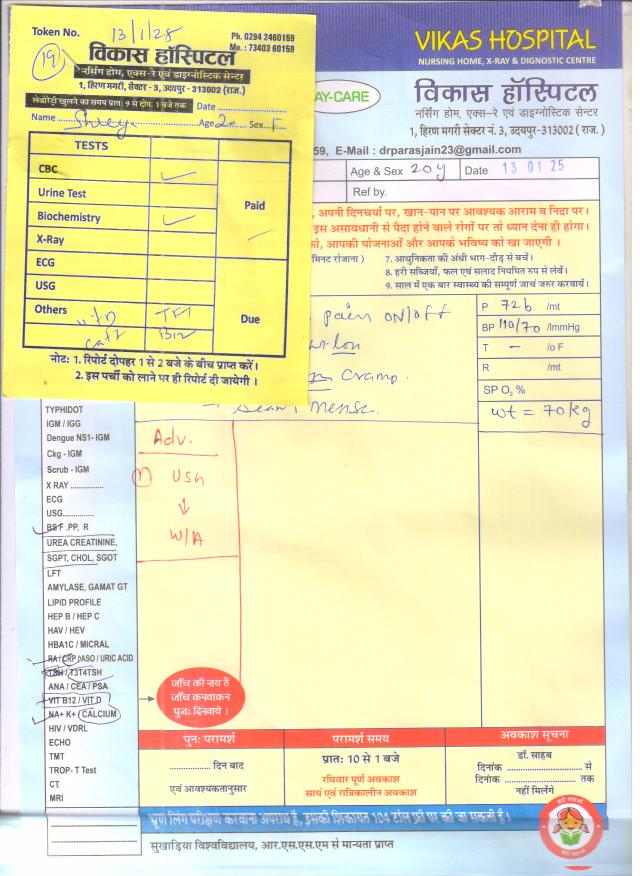 Token No. 13/1/28
Ph. 0294 2460159
Mo. : 73403 60159
19
विकास हॉस्पिटल
नर्सिंग होम, एक्स-रे एवं डाइग्नोस्टिक सेन्टर
1, हिरण मगरी, सेक्टर - 3, उदयपुर-313002 (राज.)
लेबोरेट्री खुलने का समय प्रातः 9 से दोप. 1 बजे तक Date
Name Shreya Age 20 Sex F
TESTS
CBC ✓
Urine Test
Biochemistry ✓
Paid
X-Ray
ECG
USG
Others Vit D TFT
Due
B12
नोट: 1. रिपोर्ट दोपहर 1 से 2 बजे के बीच प्राप्त करें।
2. इस पर्ची को लाने पर ही रिपोर्ट दी जायेगी।
VIKAS HOSPITAL
NURSING HOME, X-RAY & DIGNOSTIC CENTRE
AY-CARE
विकास हॉस्पिटल
नर्सिंग होम, एक्स-रे एवं डाइग्नोस्टिक सेन्टर
1, हिरण मगरी सेक्टर नं. 3, उदयपुर-313002 ( राज. )
59, E-Mail : drparasjain23@gmail.com
Age & Sex 20y Date 13 01 25
Ref by.
, अपनी दिनचर्या पर, खान-पान पर आवश्यक आराम व निद्रा पर।
इस असावधानी से पैदा होने वाले रोगों पर तो ध्यान देना ही होगा।
को, आपकी योजनाओं और आपके भविष्य को खा जाएगी ।
मिनट रोजाना ) 7. आधुनिकता की अंधी भाग-दौड़ से बचें।
8. हरी सब्जियाँ, फल एवं सलाद नियमित रुप से लेवें।
9. साल में एक बार स्वास्थ्य की सम्पूर्ण जाचं जरुर करवायें।
pain on/off
Cramp.
Mense.
P 72b /mt
BP 110/70 /lmmHg
T - /o F
R /mt
SP O2 %
wt = 70kg
TYPHIDOT
IGM / IGG
Dengue NS1- IGM
Ckg - IGM
Scrub - IGM
X RAY ............
ECG
USG...............
BS F .PP, R
UREA CREATININE,
SGPT, CHOL, SGOT
LFT
AMYLASE, GAMAT GT
LIPID PROFILE
HEP B / HEP C
HAV / HEV
HBA1C / MICRAL
RA / CRP /ASO / URIC ACID
TSH / T3T4TSH
ANA / CEA / PSA
VIT B12 / VIT D
NA+ K+ / CALCIUM
HIV / VDRL
ECHO
TMT
TROP- T Test
CT
MRI
Adv.
1 USG
↓
W/A
जाँच की राय हैं
जाँच करवाकर
पुनः दिखायें ।
पुनः परामर्श
............... दिन बाद
एवं आवश्यकतानुसार
परामर्श समय
प्रातः 10 से 1 बजे
रविवार पूर्ण अवकाश
सायं एवं रात्रिकालीन अवकाश
अवकाश सूचना
डॉ. साहब
दिनांक ............... से
दिनांक ............... तक
नहीं मिलेंगे
भ्रूण लिंग परीक्षण करवाना अपराध है, इसकी शिकायत 104 टोल फ्री पर की जा सकती है।
सुखाड़िया विश्वविद्यालय, आर.एस.एस.एम से मान्यता प्राप्त